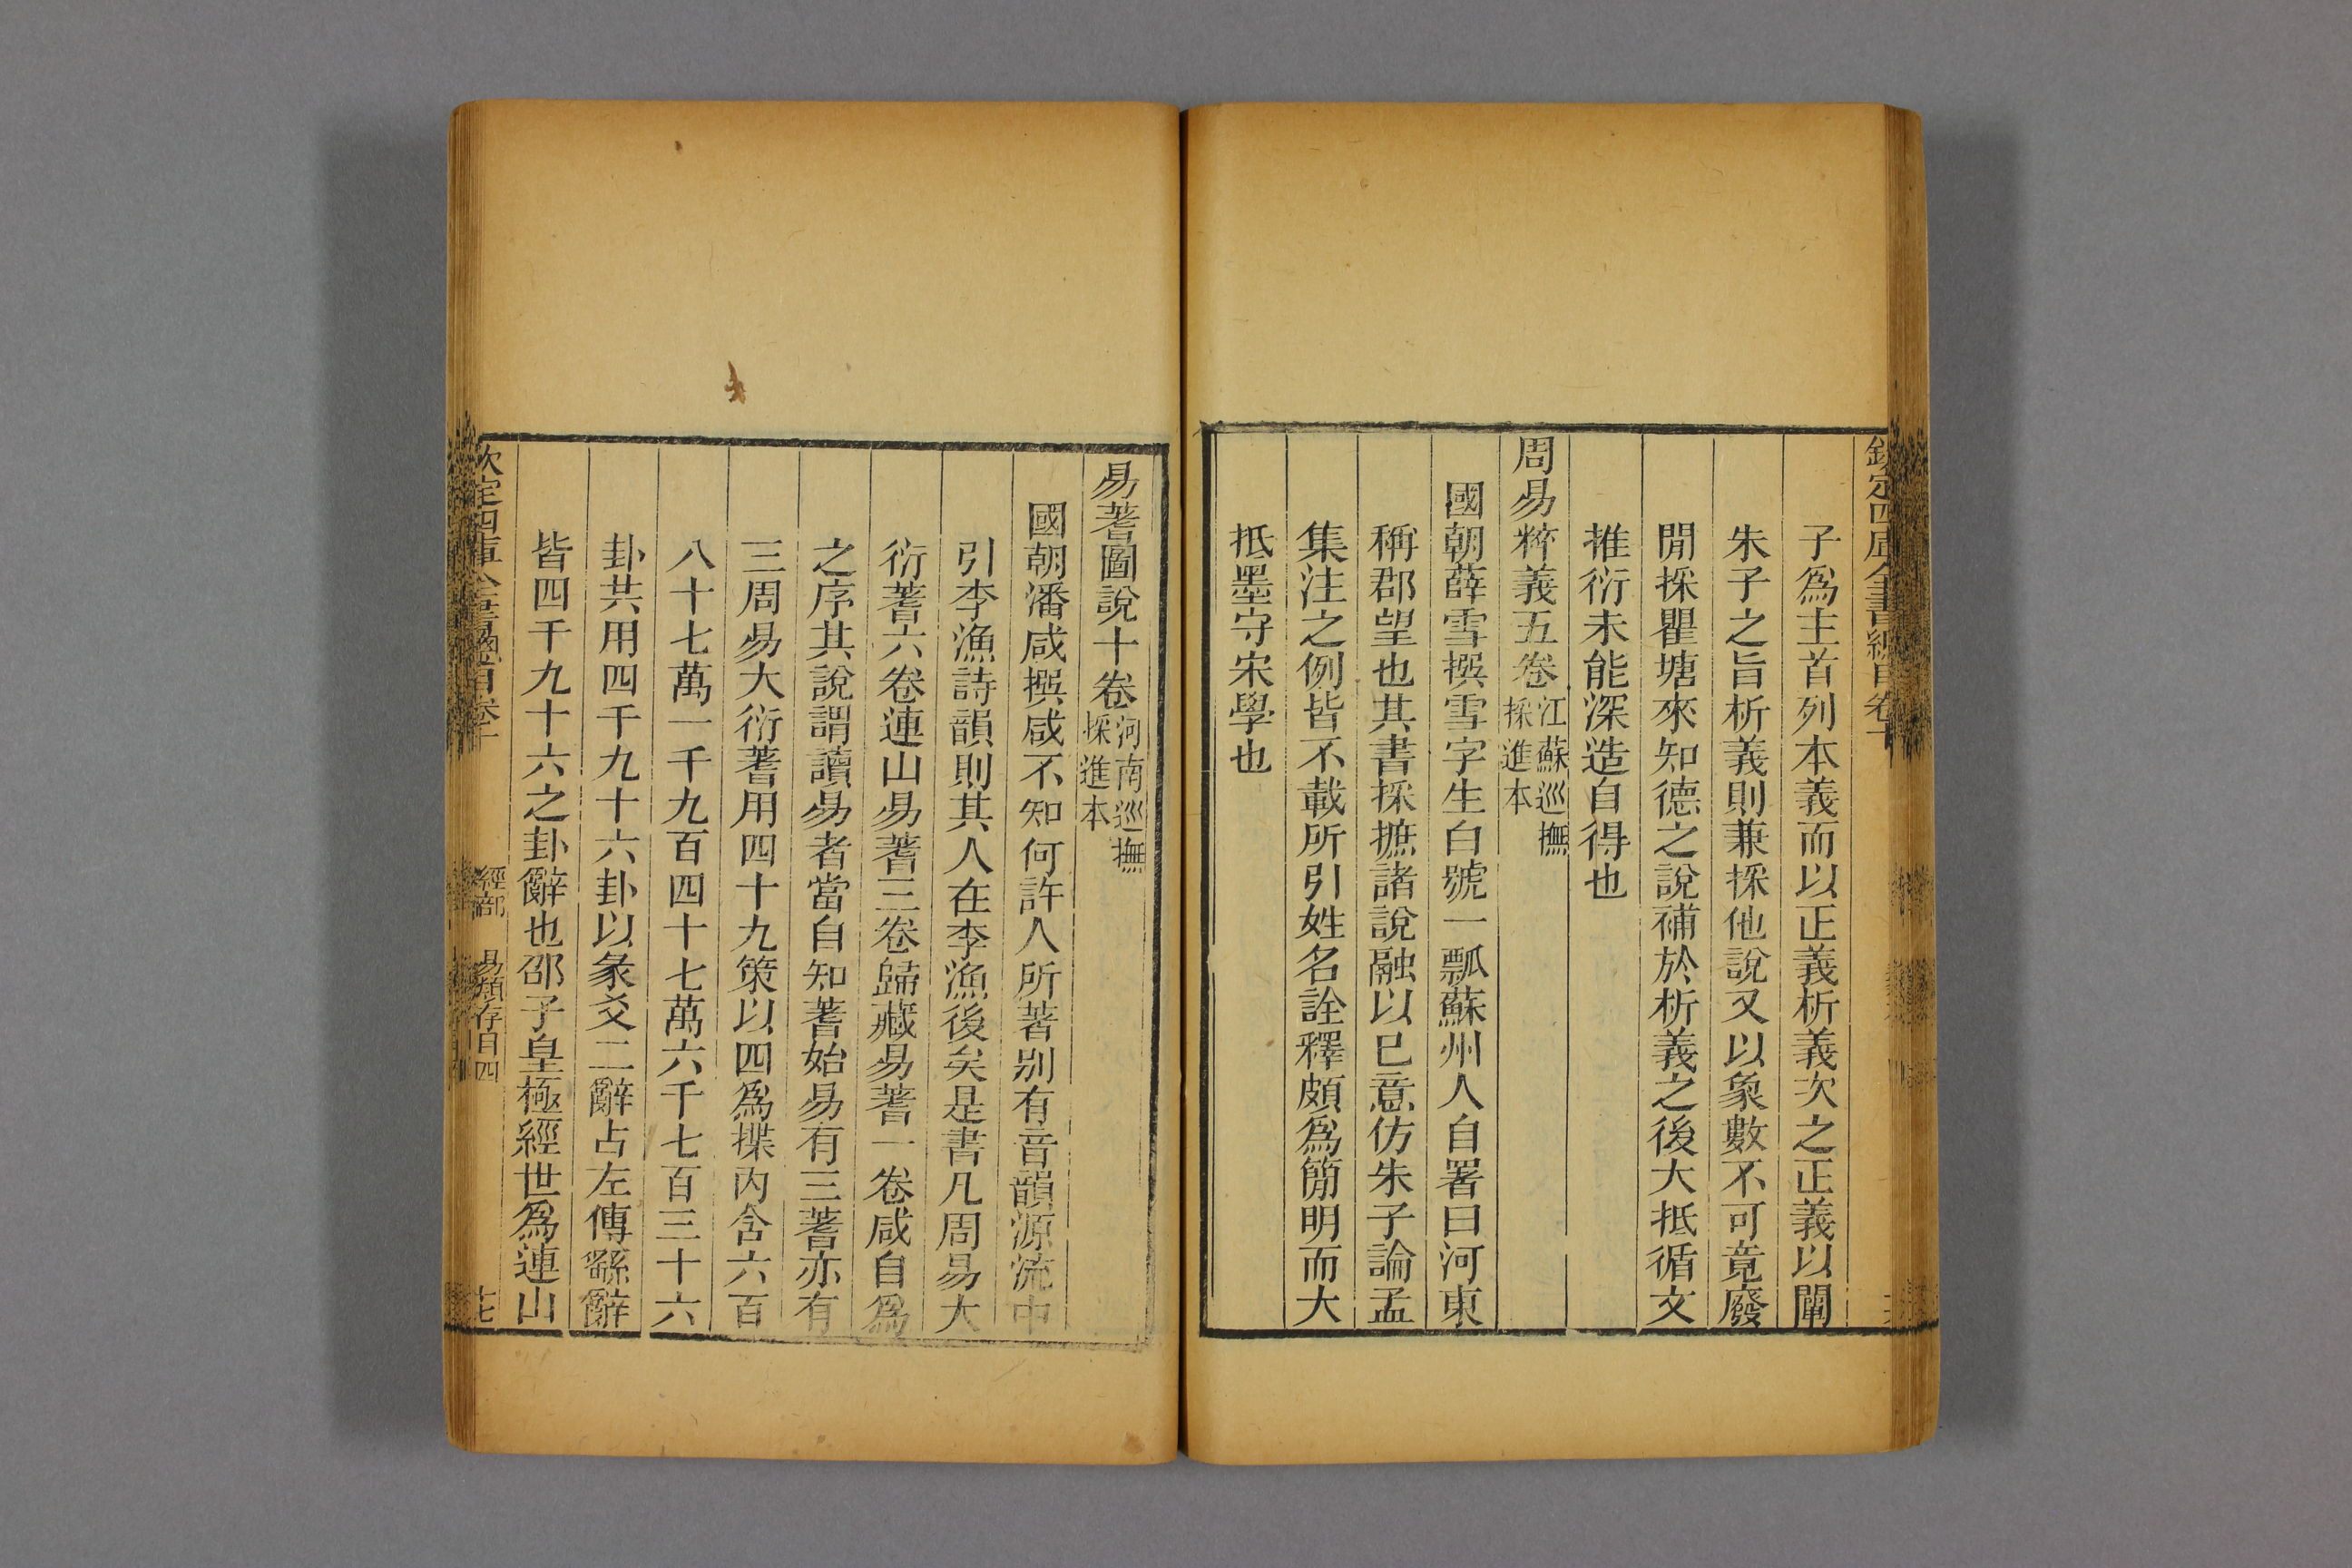 欽定四庫全書總目卷十
子爲主首列本義而以正義析義次之正義以闡
朱子之旨析義則兼採他說又以象數不可竟廢
閒採瞿塘來知德之說補於析義之後大抵循文
推衍未能深造自得也
周易粹義五卷
江蘇巡撫
採進本
國朝薛雪撰雪字生白號一瓢蘇州人自署曰河東
稱郡望也其書採摭諸說融以已意仿朱子論孟
集注之例皆不載所引姓名詮釋頗爲簡明而大
抵墨守宋學也
易蓍圖說十卷
河南巡撫
採進本
國朝潘咸撰咸不知何許人所著別有音韻源流中
引李漁詩韻則其人在李漁後矣是書凡周易大
衍蓍六卷連山易蓍三卷歸藏易蓍一卷咸自爲
之序其說謂讀易者當自知蓍始易有三蓍亦有
三周易大衍蓍用四十九策以四爲揲內含六百
八十七萬一千九百四十七萬六千七百三十六
卦共用四千九十六卦以彖爻二辭占左傳繇辭
皆四千九十六之卦辭也邵子皇極經世爲連山
欽定四庫全書總目卷十
經部 易類存目四
七